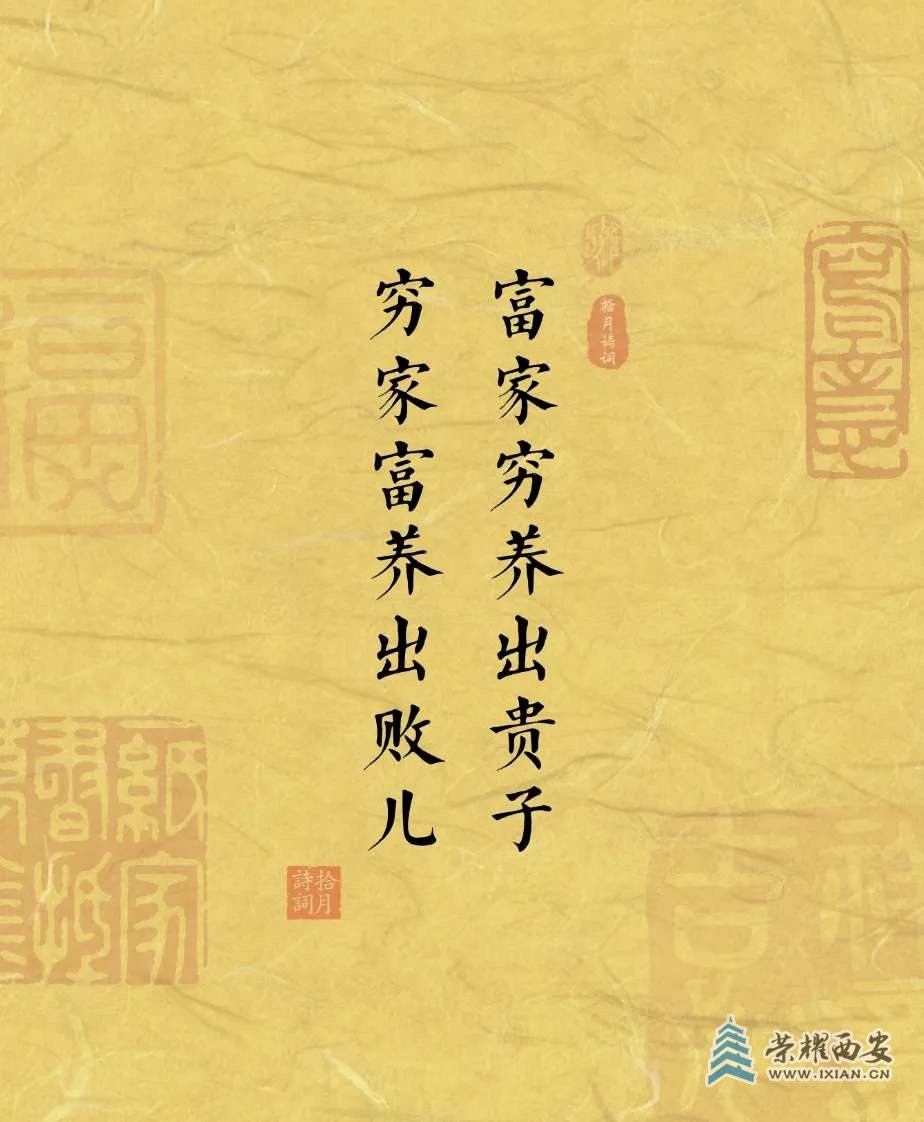 富家穷养出贵子
穷家富养出败儿
拾月诗词
拾月
詩詞
荣耀西安
WWW.IXIAN.CN